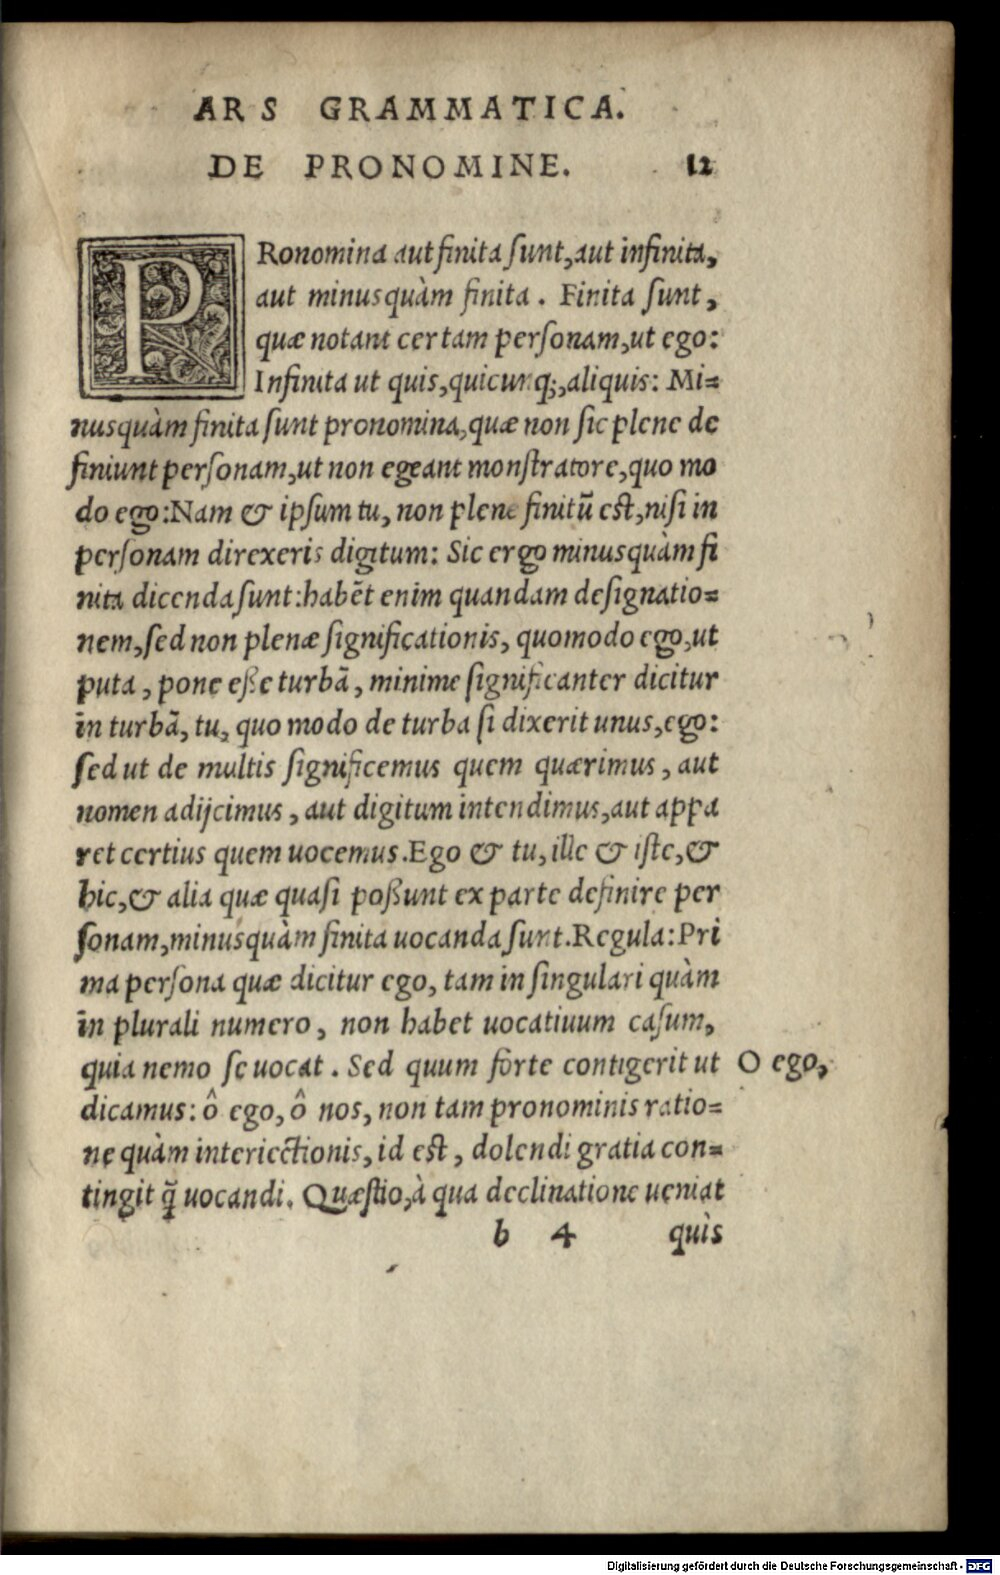 ARS GRAMMATICA.
DE PRONOMINE. 12
PRonomina aut finita sunt, aut infinita,
aut minusquàm finita. Finita sunt,
quæ notant certam personam, ut ego:
Infinita ut quis, quicunq;, aliquis: Mi=
nusquàm finita sunt pronomina, quæ non sic plene de
finiunt personam, ut non egeant monstratore, quo mo
do ego: Nam & ipsum tu, non plene finitū est, nisi in
personam direxeris digitum: Sic ergo minusquàm fi
nita dicenda sunt: habēt enim quandam designatio=
nem, sed non plenæ significationis, quomodo ego, ut
puta, pone eße turbā, minime significanter dicitur
in turbā, tu, quo modo de turba si dixerit unus, ego:
sed ut de multis significemus quem quærimus, aut
nomen adijcimus, aut digitum intendimus, aut appa
ret certius quem uocemus. Ego & tu, ille & iste, &
hic, & alia quæ quasi poßunt ex parte definire per
sonam, minusquàm finita uocanda sunt. Regula: Pri
ma persona quæ dicitur ego, tam in singulari quàm
in plurali numero, non habet uocatiuum casum,
quia nemo se uocat. Sed quum forte contigerit ut O ego,
dicamus: ô ego, ô nos, non tam pronominis ratio=
ne quàm interiectionis, id est, dolendi gratia con=
tingit q̃ uocandi. Quæstio, à qua declinatione ueniat
b 4 quis
Digitalisierung gefördert durch die Deutsche Forschungsgemeinschaft - DFG